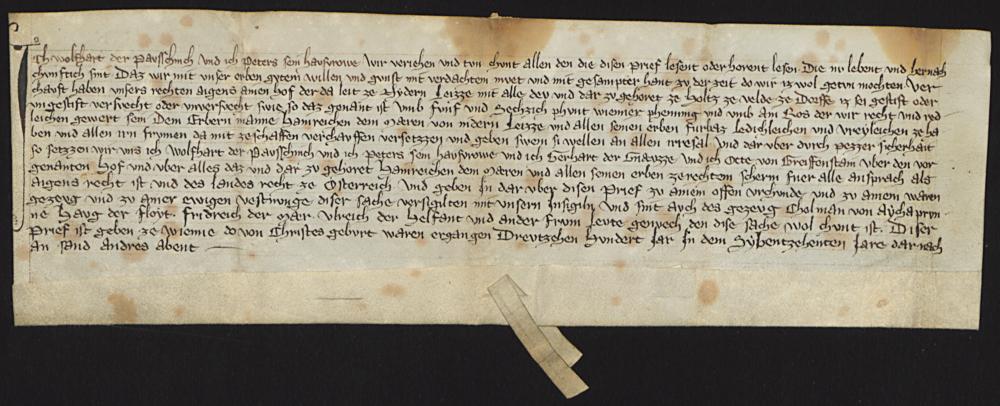 Ich Wolfhart der Pausschnich und ich Peters sein hausvrowe Wir veriehen und tvn chunt allen den die disen Prief lesent oder horent lesen Die nv lebent und hernach
chunftich sint Daz wir mit unser erben gvtem willen und gunst mit verdachtem mvet und mit gesampter hant zv der zeit do wir iz wol getvn mochten Ver
chauft haben unsers rechten aigens ainen hof der da leit ze Nydern Leizze mit alle dev und dar zv gehoret ze Holtz ze velde ze Dorffe iz sei gestift oder
ungestift versvecht oder unversvecht swie so daz genant ist Umb funf und Sechzich phunt wienner phenning und umb ain Ros der wir recht und red
leichen gewert sein Dem Erbern manne Hainreichen dem Maren von nidern Leizze und allen seinen erben furbaz ledichleichen und vreyleichen ze ha
ben und allen irn frumen da mit ze schaffen verchauffen versetzzen und geben swem si wellen an allen irresal und dar uber durch pezzer sicherhait
so setzzen wir uns ich Wolfhart der Pausschnich und ich Peters sein hausvrowe und ich Gerhart der und ich Otte von Greiffenstain uber den vor
genanten Hof und uber alles daz und dar zv gehoret Hainreichen dem Maren und allen seinen erben ze rechten scherm fuer alle ansprach als
aigens recht ist und des landes recht ze Osterreich Und geben in dar uber disen Prief zv ainem offen urchunde und zv ainem waren
gezeug und zv ainer ewigen vestnunge diser sache versigilten mit unsern Insigiln Und sint auch des gezeug Cholman von Aychaprun
ne Haug der floyt. Fridreich der Mar. Ulreich der Helfant und ander frum leute genuech den dise sache wol chunt ist. Diser
Prief ist geben ze Wienne do von Christes geburt waren ergangen Dreutzehen Hundert Jar In dem Sybentzehenten Jare dar nach
An sand Andres abent